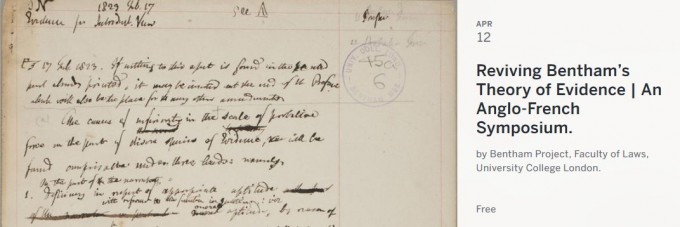 1823 Feb. 17
Evidence for Introduct. View
17 Feb. 1823. If nothing to this effect is found in the
part already printed, it may be inserted at the end of the Preface
which will also be the place for any other amendments
The causes of inferiority in the scale of probative
force on the part of divers species of Evidence, will be
found comprisable under three heads: namely,
1. Deficiency in respect of appropriate aptitude
aptitude, by reason of
Preface
150
6
APR
12
Reviving Bentham's
Theory of Evidence | An
Anglo-French
Symposium.
by Bentham Project, Faculty of Laws,
University College London.
Free